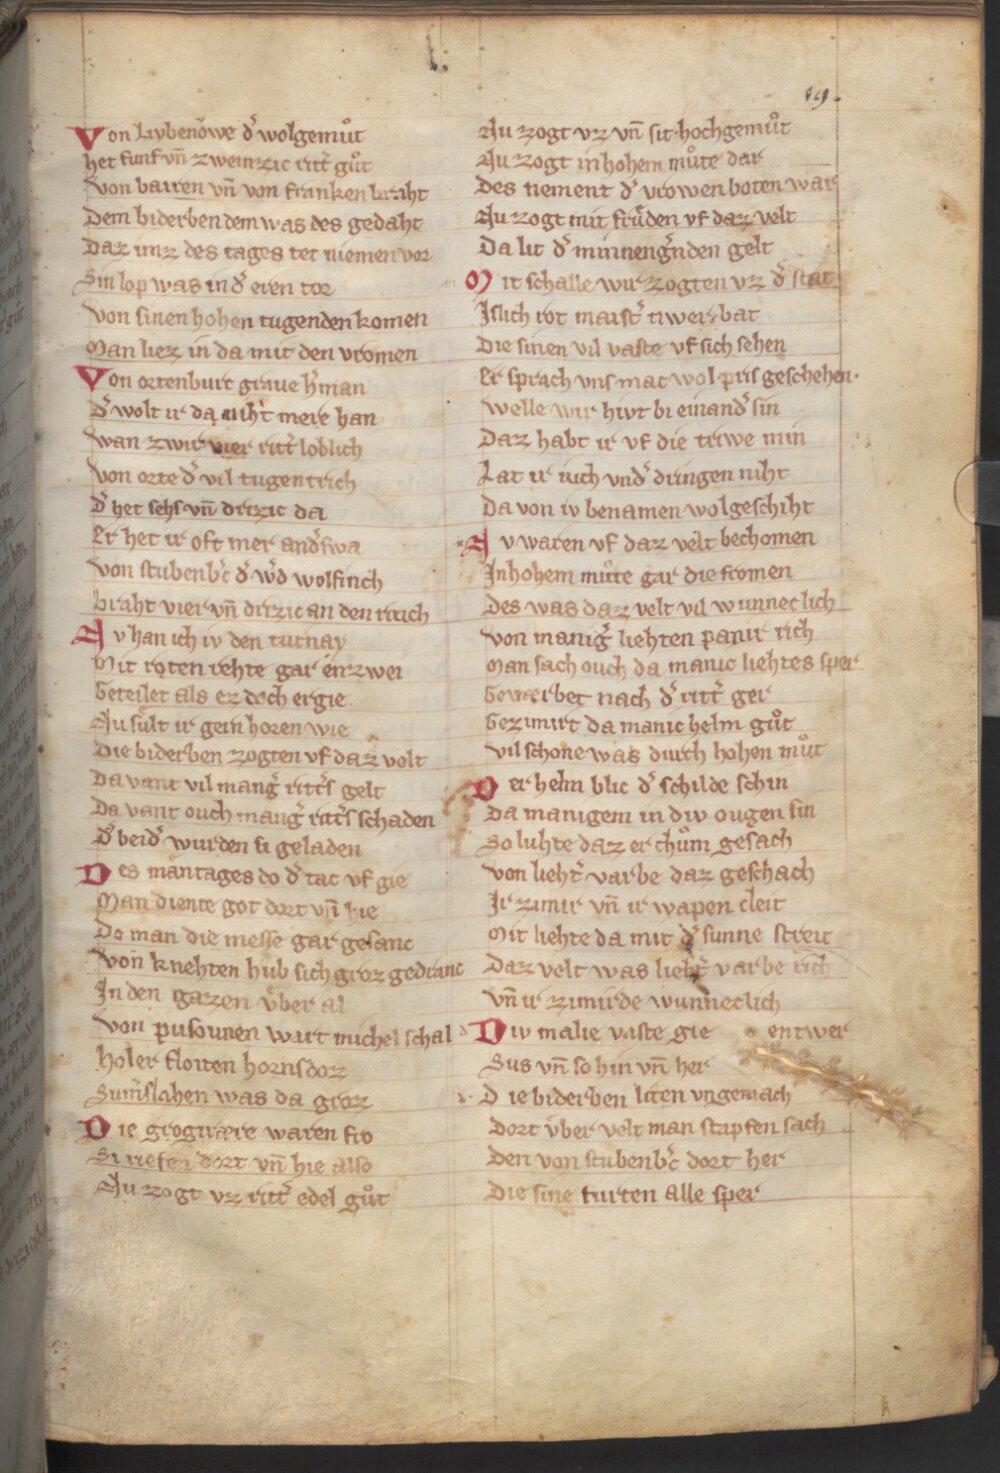 19.
Von Livbenowe d̾ wolgemuͦt
het funf vn̄ zweinzic ritt̾ guͦt
Von bairen vn̄ von franken braht
Dem biderben dem was des gedaht
Daz imz des tages tet niemen vor
Sin lop was in d̾ eren tor
Von sinen hohen tugenden komen
Man liez in da mit den vromen
Von ortenburt graue h̾man
D̾ wolt ir da niht mere han
wan zwir vier ritt̾ loblich
Von orte d̾ vil tugentrich
D̾ het sehs vn̄ drizic da
Er het ir oft mer and̾swa
Von stubenb̾c d̾ w̾d wolfinch
braht vier vn̄ drizic an den rinch
Nv han ich iv den turnay
Mit roten rehte gar enzwei
Geteilet als ez doch ergie
Nu sult ir gern horen wie
Die biderben zogten vf daz velt
Da vant vil mang̾ ritt̾s gelt
Da vant ouch mang̾ ritt̾s schaden
D̾ beid̾ wurden si geladen
Des mantages do d̾ tac vf gie
Man diente got dort vn̄ hie
Do man die messe gar gesanc
Von knehten hub sich groz gedranc
In den gazen vber al
Von pusounen wart michel schal
Holer floiten horns doz
Sum̾slahen was da groz
Die grogirære waren fro
Si riefen dort vn̄ hie also
Nu zogt vz ritt̾ edel guͦt
Nu zogt vz vn̄ sit hochgemuͦt
Nu zogt in hohem muͦte dar
Des nement d̾ vrowen boten war
Nu zogt mit freuden vf daz velt
Da lit d̾ minneng̾nden gelt
Mit schalle wir zogten vz d̾ stat
Islich rot maist̾ tiwer bat
Die sinen vil vaste vf sich sehen
Er sprach vns mac wol pris geschehen
Welle wir hivt bi einand̾ sin
Daz habt ir vf die triwe min
Lat ir iuch vnd̾ dringen niht
Da von iv benamen wol geschiht
Nv waren vf daz velt bechomen
In hohem muͦte gar die fromen
Des was daz velt vil wunneclich
von manig̾ liehten panir rich
Man sach ouch da manic liehtes sper
Gevarbet nach d̾ ritt̾ ger
Gezimirt da manic helm guͦt
Vil schone was durch hohen muͦt
Der helm blic d̾ schilde schin
Da manigem in div ougen sin
So luhte daz er chuͦm gesach
Von lieht̾ varbe daz geschach
Ir zimir vn̄ ir wapen cleit
Mit liehte da mit d̾ sunne streit
Daz velt was lieht̾ varbe rich
Vn̄ ir zimirde wunneclich
Div malie vaste gie entwer
Sus vn̄ so hin vn̄ her
Die biderben liten vngemach
Dort vber velt man stapfen sach
Den von stubenb̾c dort her
Die sine furten alle sper